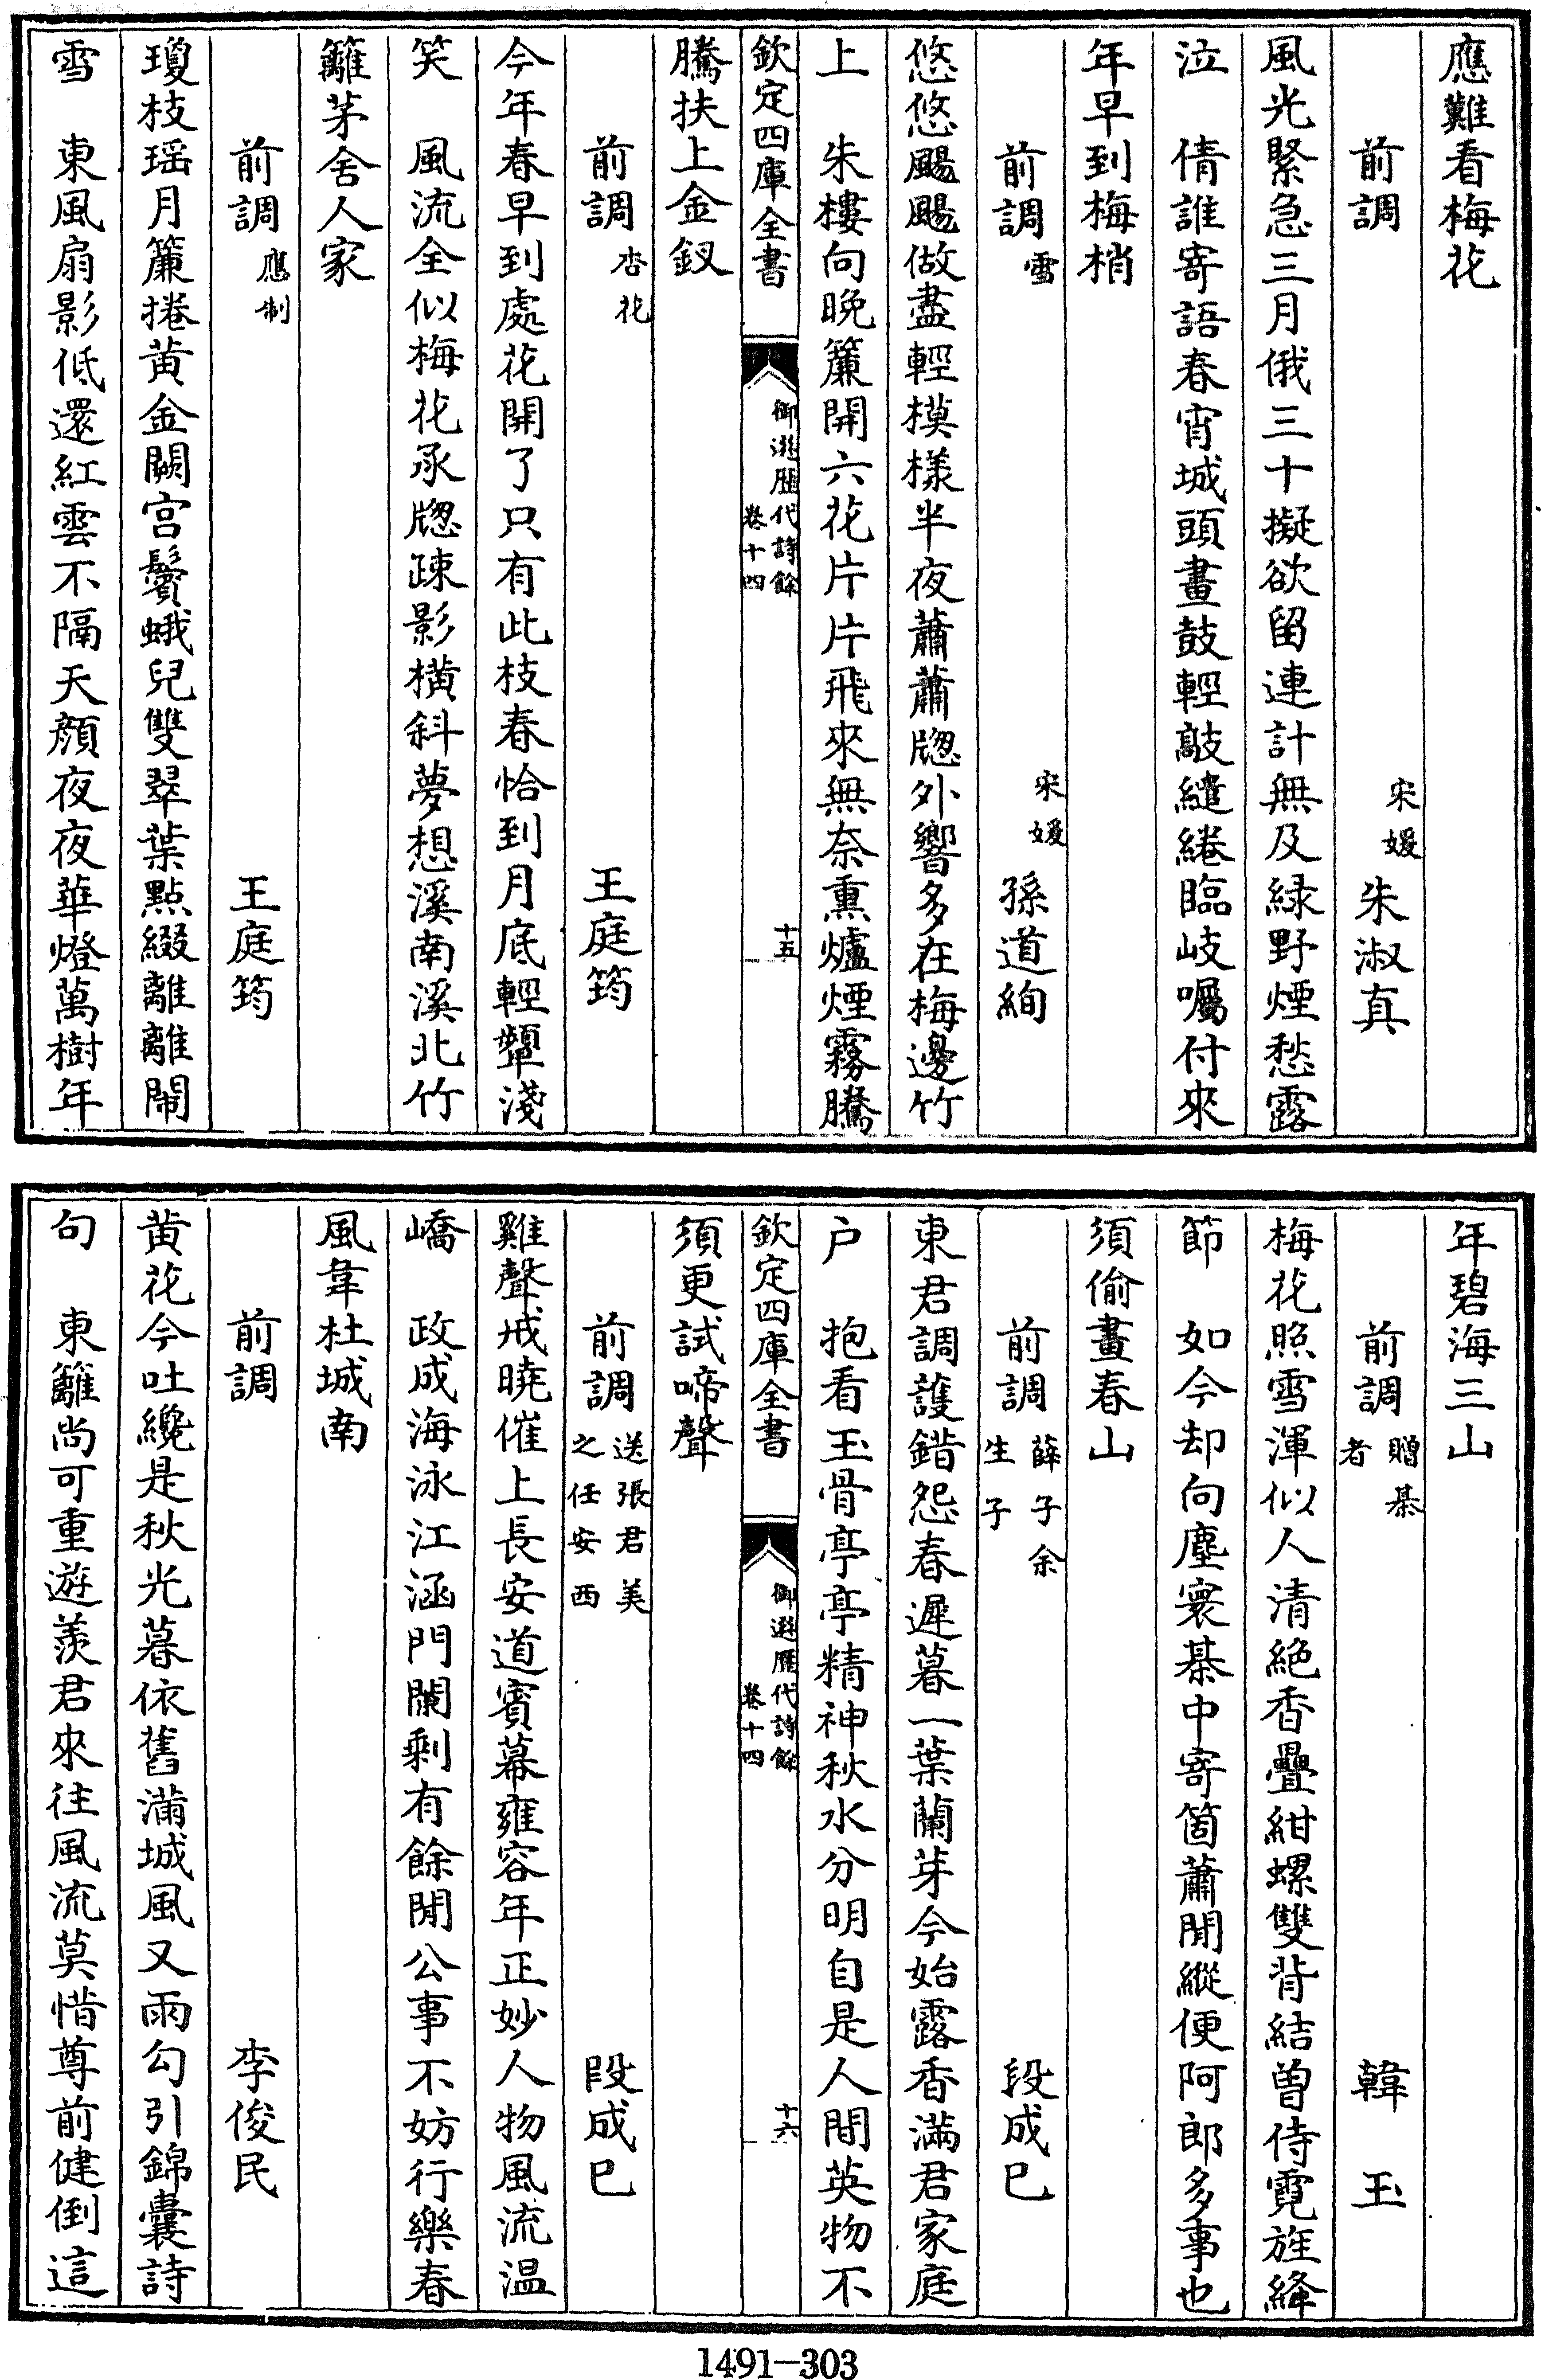 應難看梅花
前調　宋媛朱淑真
風光緊急三月俄三十擬欲留連計無及緑野煙愁露
泣　倩誰寄語春宵城頭畫鼓輕敲繾綣臨岐囑付來
年早到梅梢
前調雪　宋媛孫道絢
悠悠颺颺做盡輕模樣半夜蕭蕭牕外響多在梅邊竹
上　朱樓向晚簾開六花片片飛來無奈熏爐煙霧騰
欽定四庫全書　御選歴代詩餘　卷十四　十五
騰扶上金釵
前調杏花　王庭筠
今年春早到處花開了只有此枝春恰到月底輕顰淺
笑　風流全似梅花承牕疎影橫斜夢想溪南溪北竹
籬茅舍人家
前調應制　王庭筠
瓊枝瑶月簾捲黄金闕宫鬢蛾兒雙翠葉點綴離離鬧
雪　東風扇影低還紅雲不隔天顔夜夜華燈萬樹年
年碧海三山
前調贈棊者　韓玉
梅花照雪渾似人清絶香疊紺螺雙背結曽侍霓旌絳
節　如今却向塵寰棊中寄箇蕭閒縱便阿郎多事也
須偷畫春山
前調薛子余生子　段成已
東君調護錯怨春遲暮一葉蘭芽今始露香滿君家庭
户　抱看玉骨亭亭精神秋水分明自是人間英物不
欽定四庫全書　御選歴代詩餘　卷十四　十六
須更試啼聲
前調送張君美之任安西　段成已
雞聲戒曉催上長安道賓幕雍容年正妙人物風流温
嶠　政成海泳江涵門闌剩有餘閒公事不妨行樂春
風韋杜城南
前調　李俊民
黄花今吐纔是秋光暮依舊滿城風又雨勾引錦囊詩
句　東籬尚可重遊羨君來往風流莫惜尊前健倒這
1491—303